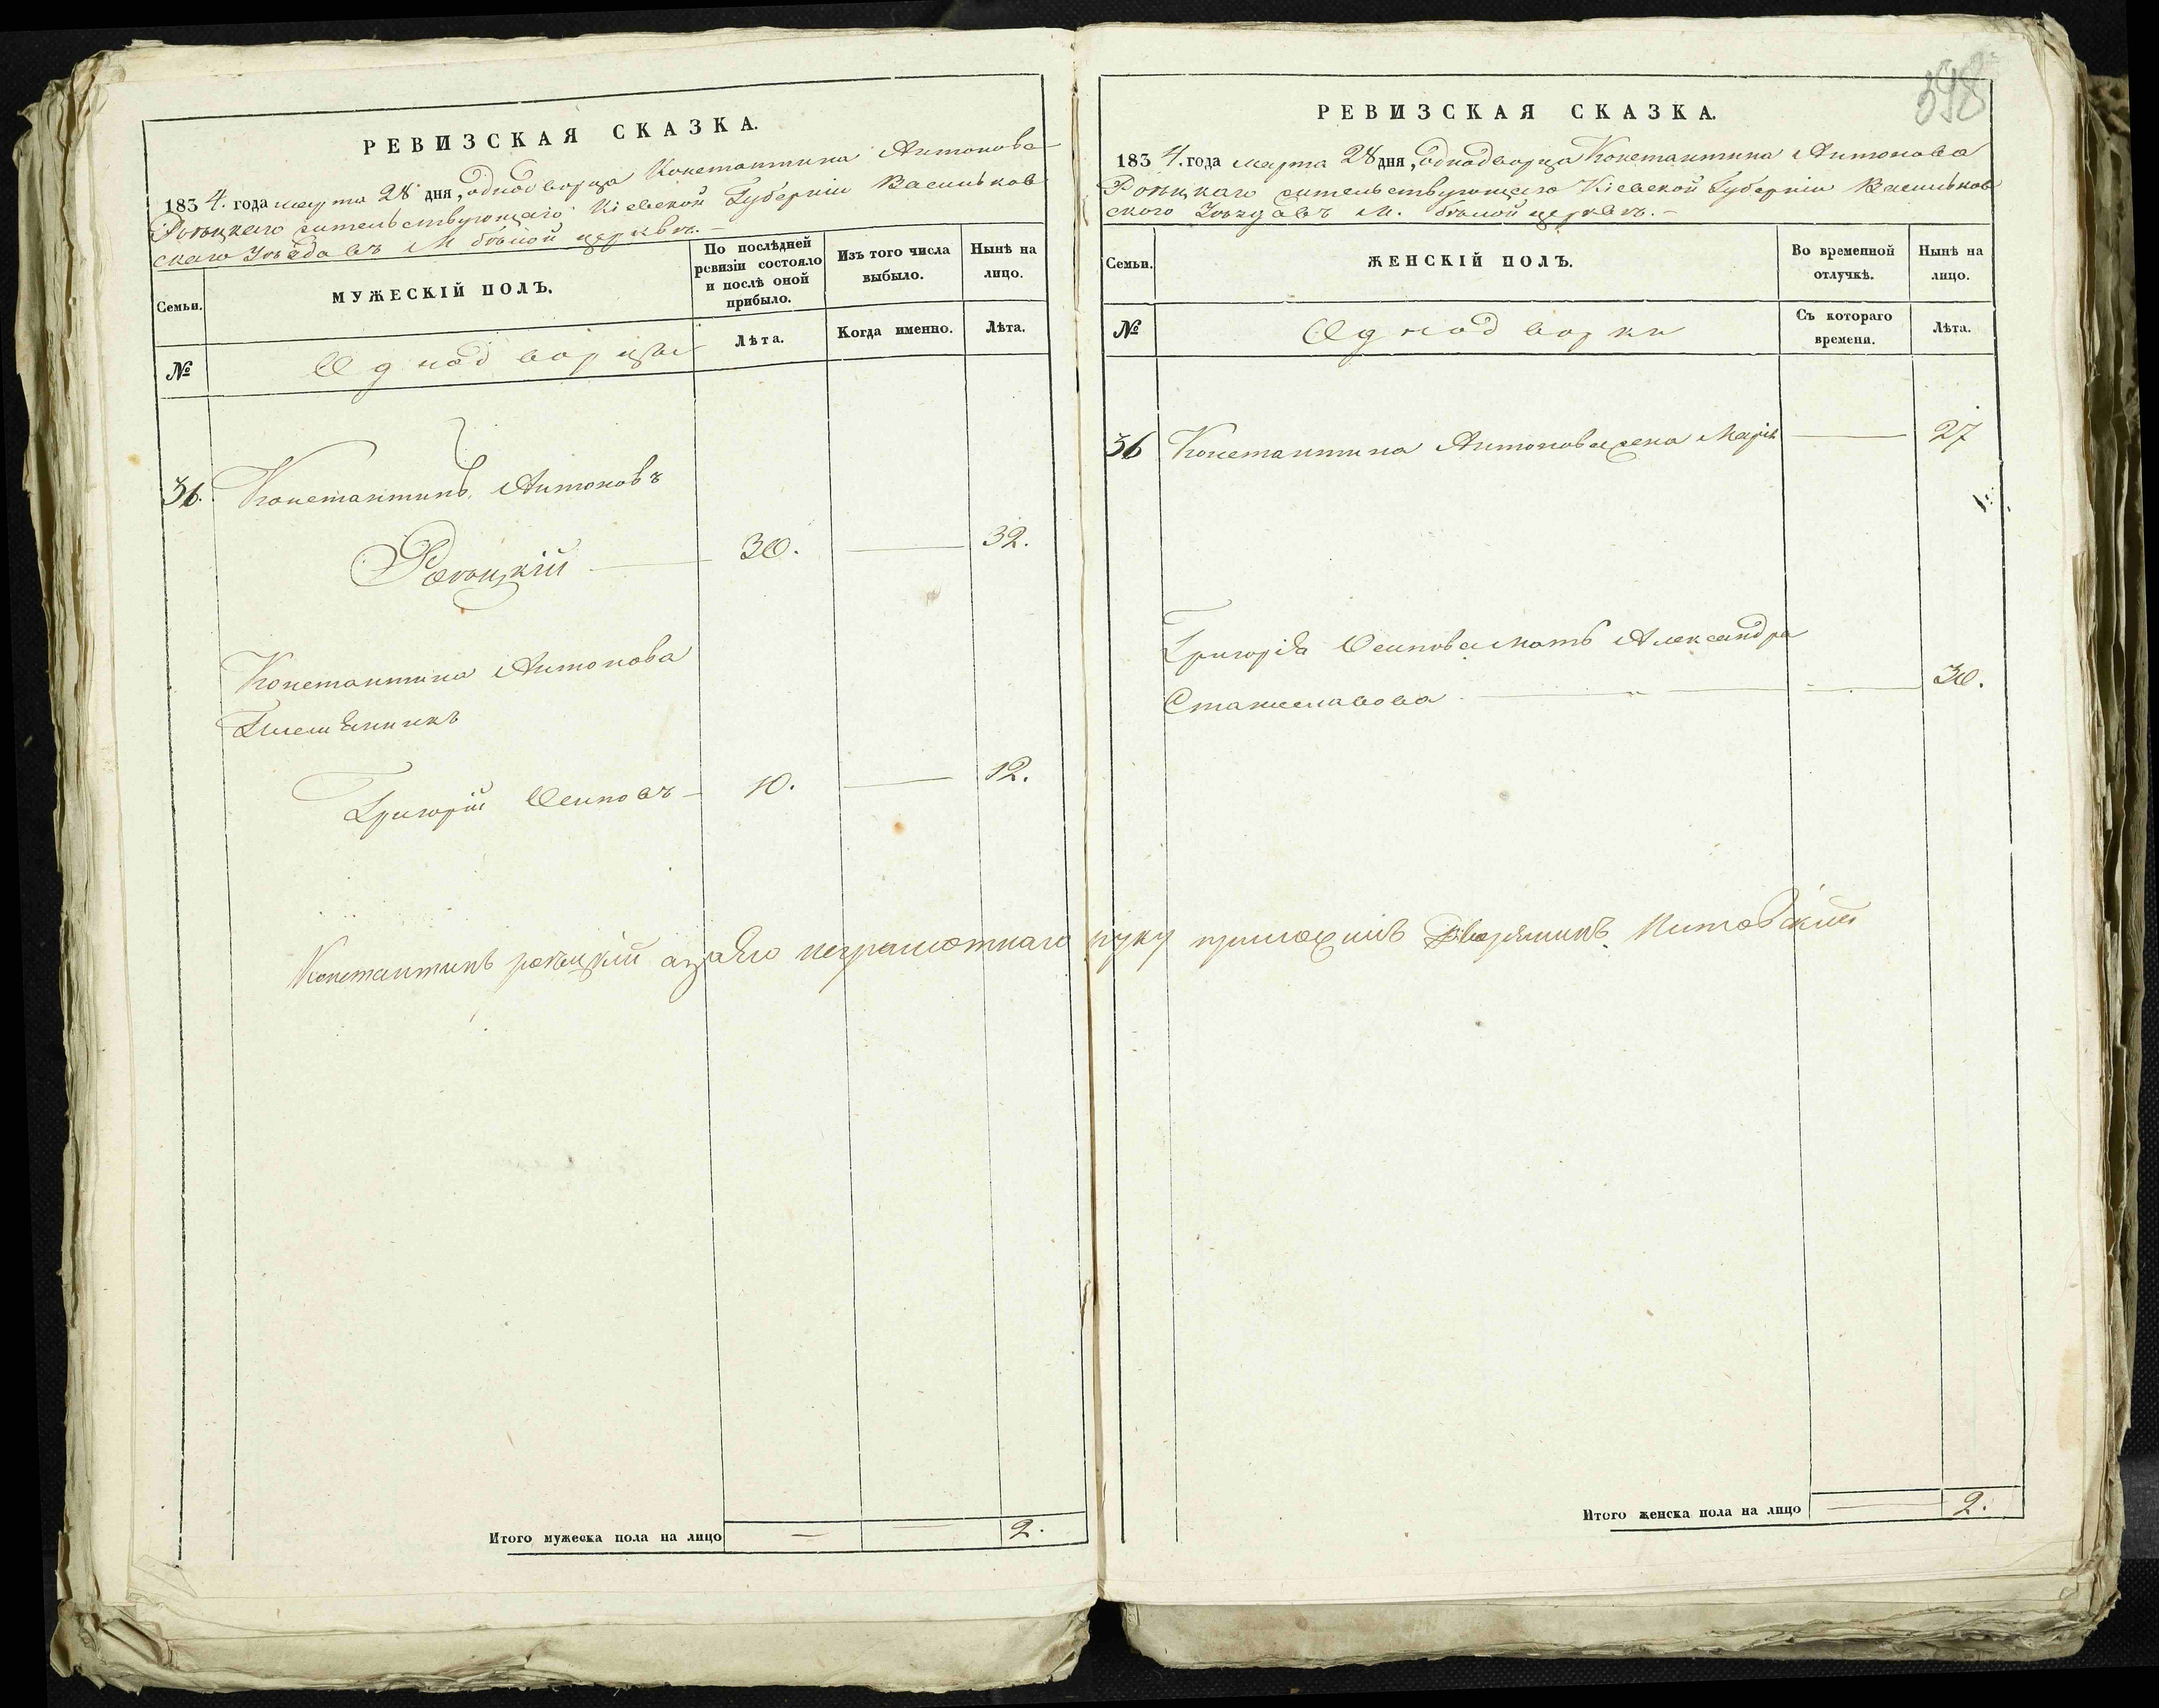 РЕВИЗСКАЯ СКАЗКА.
1834. года марта 28 дня, однодворца Константина Антонова
жительствующаго Кіевской Губерніи Васильков
скаго Уѣзда въ М бѣлой церквѣ.–
Семьи.
МУЖЕСКІЙ ПОЛЪ.
По послѣдней
ревизіи состояло
и послѣ оной
прибыло.
Изъ того числа
выбыло.
Нынѣ на
лицо.
№
Однодворцы
Лѣта.
Когда именно.
Лѣта.
36. Константинъ Антоновъ
30. — 32.
Константина Антонова
Племянникъ
Григорій Осиповъ — 10. — 12.
Константинъ а за его неграмотнаго руку приложилъ Дворянинъ
Итого мужеска пола на лицо — 2.
398
РЕВИЗСКАЯ СКАЗКА.
1834. года марта 28 дня, однодворца Константина Антонова
жительствующаго Кіевской Губерніи Васильков
ского Уѣзда въ М. бѣлой церквѣ.–
Семьи.
ЖЕНСКІЙ ПОЛЪ.
Во временной
отлучкѣ.
Нынѣ на
лицо.
№
Однодворки
Съ котораго
времени.
Лѣта.
36 Константина Антонова жена Марія — 27
Григорія Осипова мать Александра
Станиславова — 30.
Итого женска пола на лицо — 2.